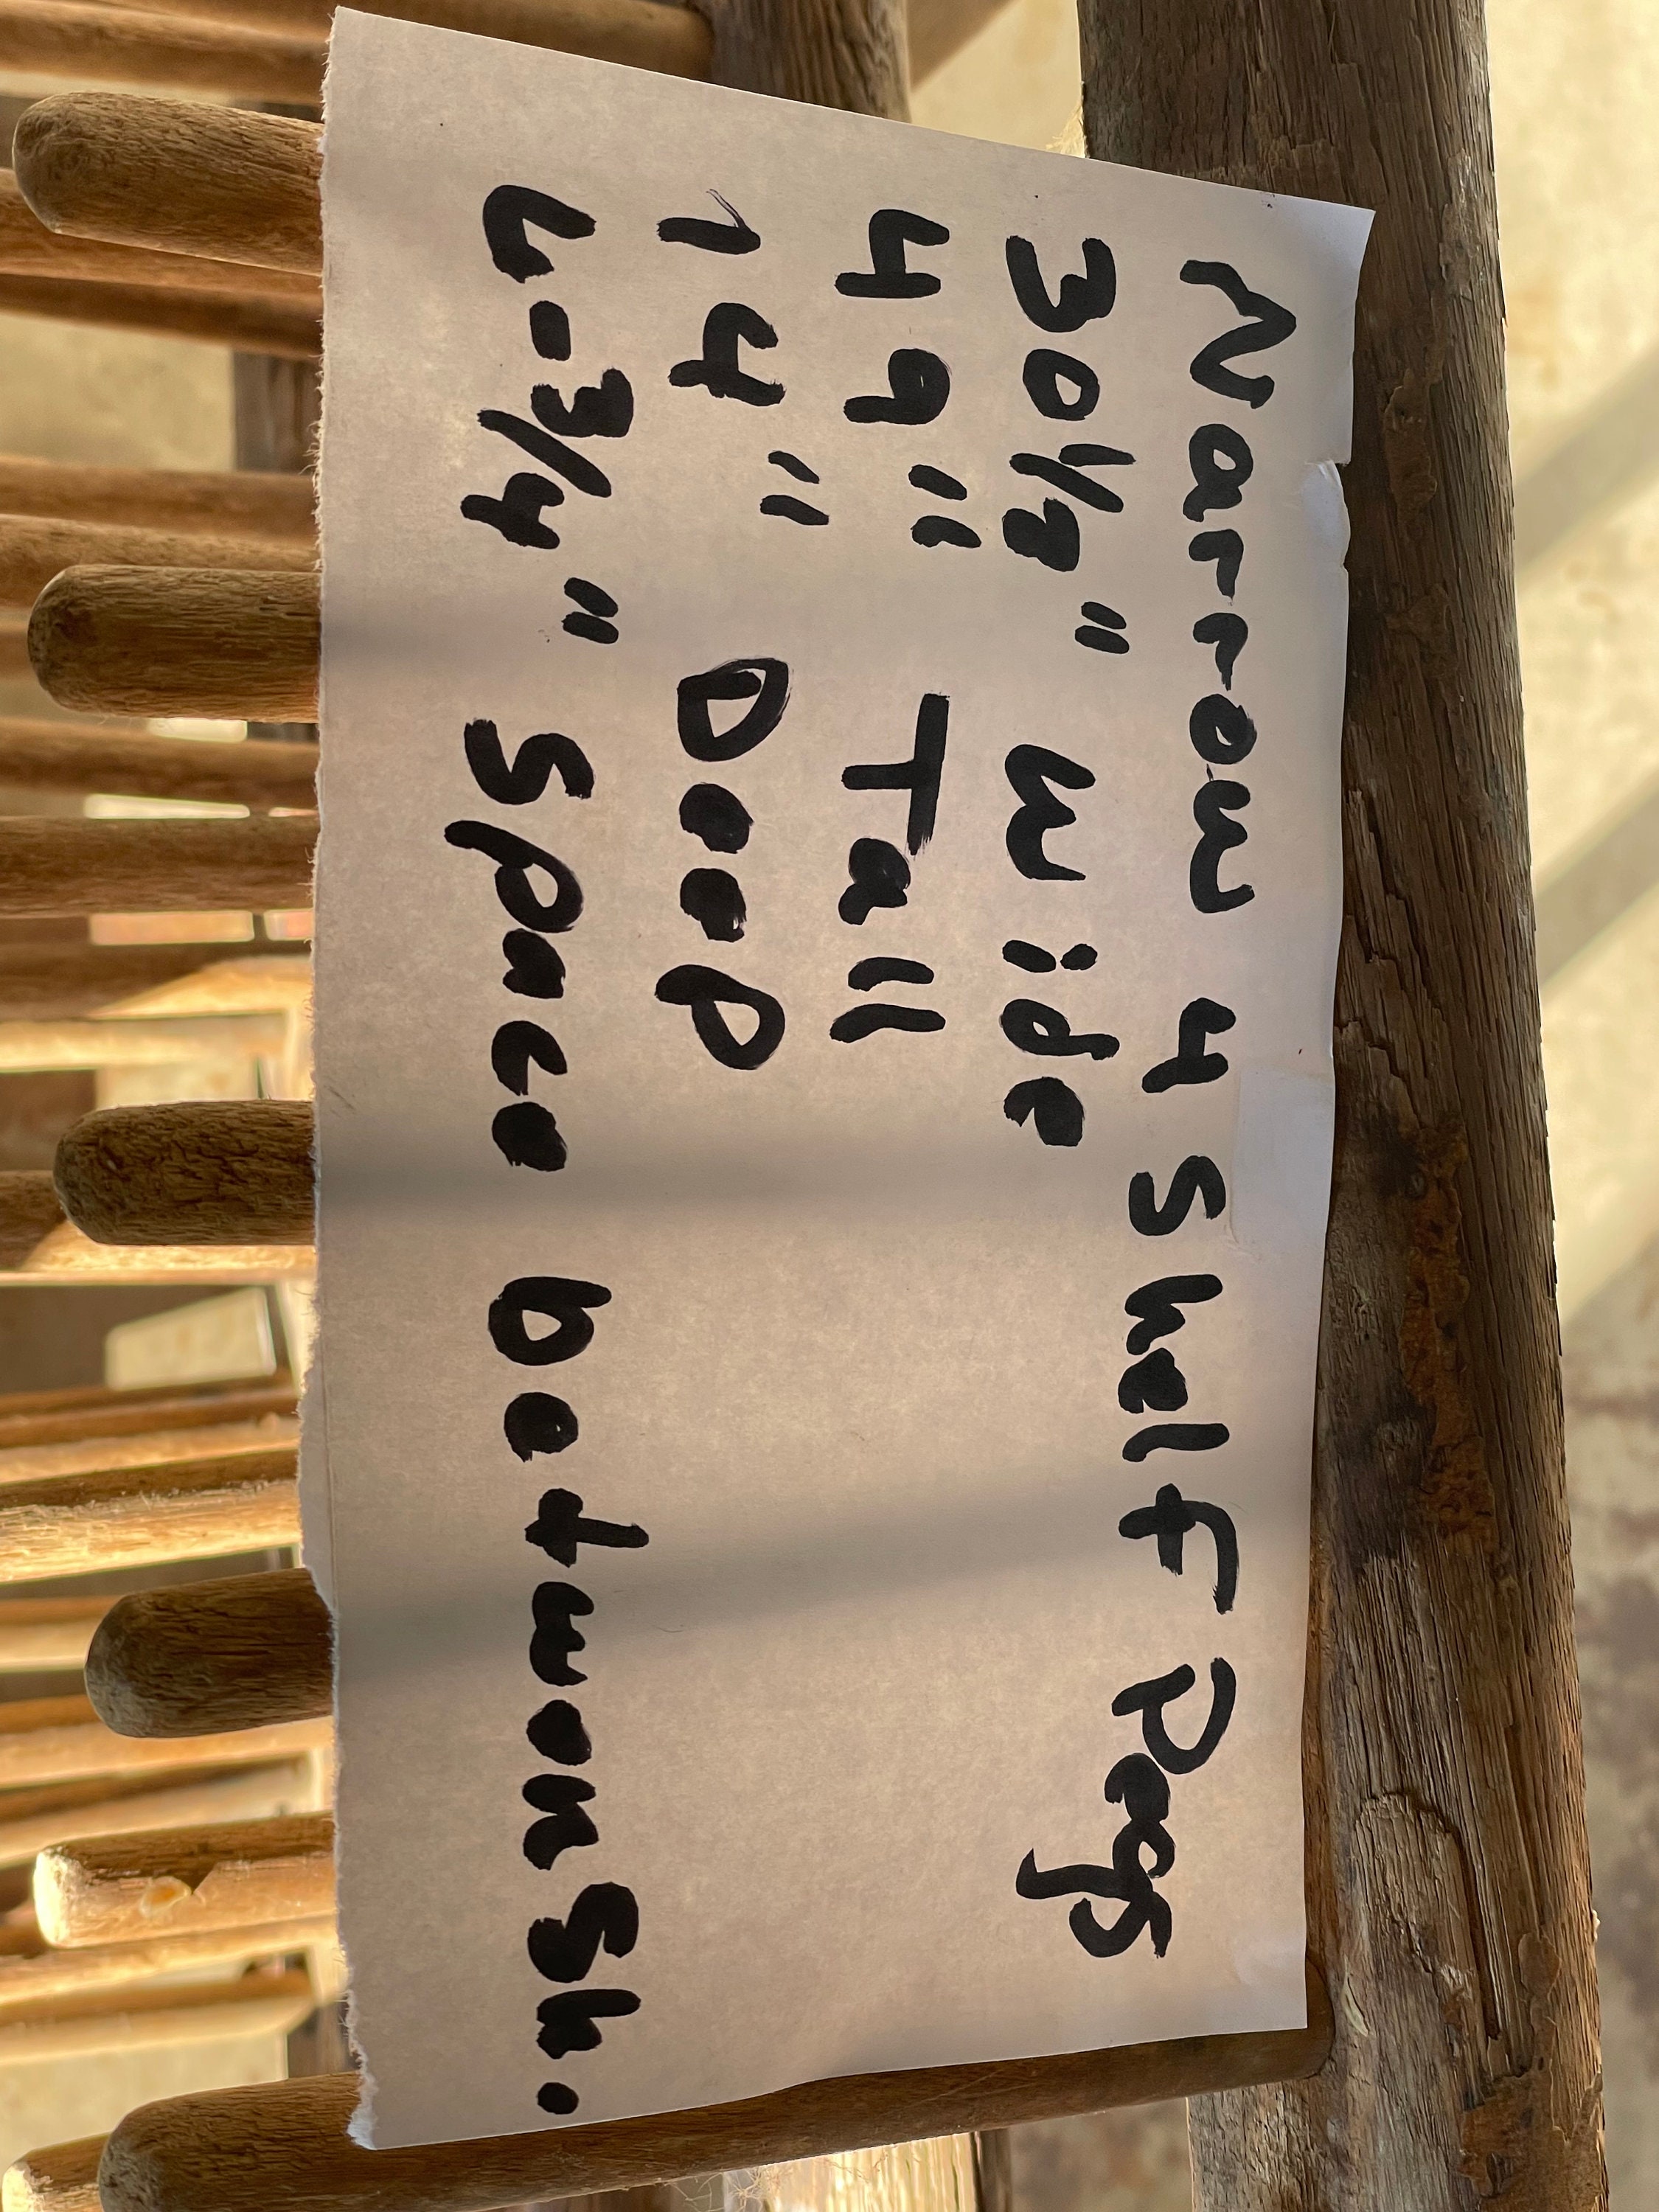 Narrow 4 Shelf Pegs
30 1/2" Wide
49" Tall
14" Deep
6-3/4" Space between Sh.